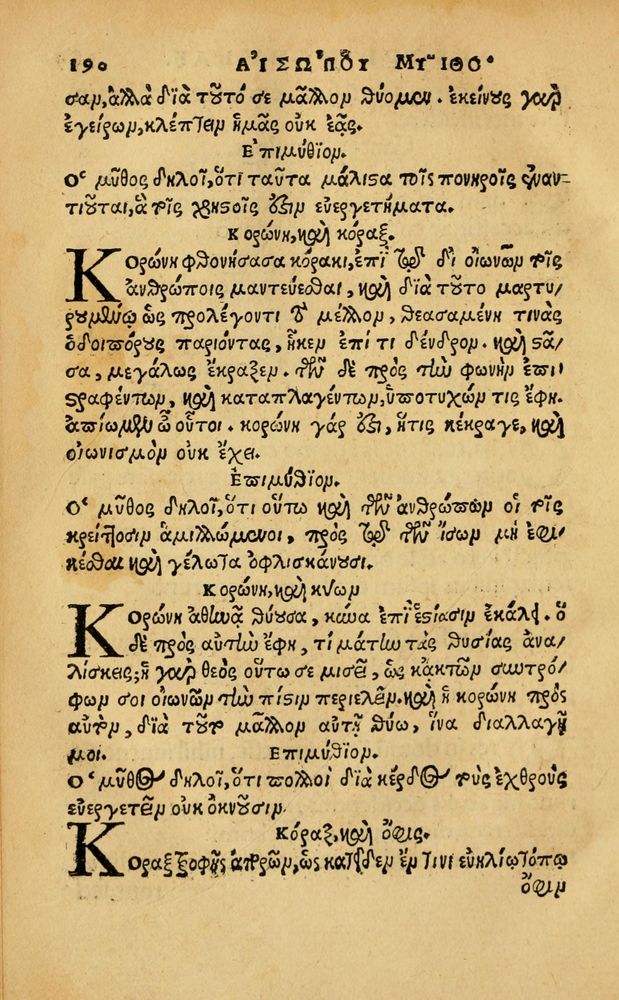 190 ΑἸΣΩΠΟΥ ΜΥ͂ΘΟΙ
σαν, ἀλλὰ διὰ τοῦτό σε μᾶλλον θύομεν. ἐκείνους γὰρ
ἐγείρων, κλέπτειν ἡμᾶς οὐκ ἐᾷς.
Ἐπιμύθιον.
Ὁ μῦθος δηλοῖ, ὅτι ταῦτα μάλιστα τοῖς πονηροῖς ἐναν-
τιοῦται, ἃ τοῖς χρηστοῖς ἐστιν εὐεργετήματα.
Κορώνη, καὶ κόραξ.
Κορώνη φθονήσασα κόρακι, ἐπὶ τῷ δι οἰωνῶν τοῖς
ἀνθρώποις μαντεύεσθαι, καὶ διὰ τοῦτο μαρτυ/
ρουμένῳ ὡς προλέγοντι τὸ μέλλον, θεασαμένη τινὰς
ὁδοιπόρους παριόντας, ἧκεν ἐπί τι δένδρον. καὶ στᾶ-
σα, μεγάλως ἔκραξεν. τῶν δὲ πρὸς τὴν φωνὴν ἐπι/
στραφέντων, καὶ καταπλαγέντων, ὑποτυχών τις ἔφη.
ἀπίωμεν ὦ οὗτοι. κορώνη γάρ ἐστιν, ἥτις κέκραγε, καὶ
οἰωνισμὸν οὐκ ἔχει.
Ἐπιμύθιον.
Ὁ μῦθος δηλοῖ, ὅτι οὕτω καὶ τῶν ἀνθρώπων οἱ τοῖς
κρείττοσιν ἁμιλλώμενοι, πρὸς τῷ τῶν ἴσων μὴ ἐφι/
κέσθαι καὶ γέλωτα ὀφλισκάνουσι.
Κορώνη, καὶ κύων
Κορώνη ἀθηνᾷ θύουσα, κύνα ἐπὶ ἑστίασιν ἐκάλει. ὁ
δὲ πρὸς αὐτὴν ἔφη, τί μάτην τὰς θυσίας ἀνα/
λίσκεις; ἡ γὰρ θεὸς οὕτω σε μισεῖ, ὡς κἀκ τῶν συντρό/
φων σοι οἰωνῶν τὴν πίστιν περιελεῖν. καὶ ἡ κορώνη πρὸς
αὐτόν, διὰ τοῦτο μᾶλλον αὐτῇ θύω, ἵνα διαλλαγῇ
μοι. Ἐπιμύθιον.
Ὁ μῦθος δηλοῖ, ὅτι πολλοὶ διὰ κέρδος τοὺς ἐχθροὺς
εὐεργετεῖν οὐκ ὀκνοῦσιν.
Κόραξ, καὶ ὄφις.
Κόραξ τροφῆς ἀπορῶν, ὡς κατεῖδεν ἔν τινι εὐηλίῳ τόπῳ
ὄφιν